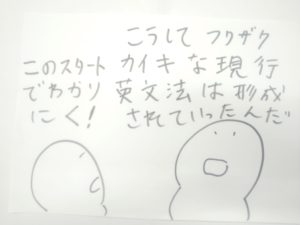 こうして フクザツ
カイキな現行
英文法は形成
されていったんだ
このスタート
でわかり
にく!